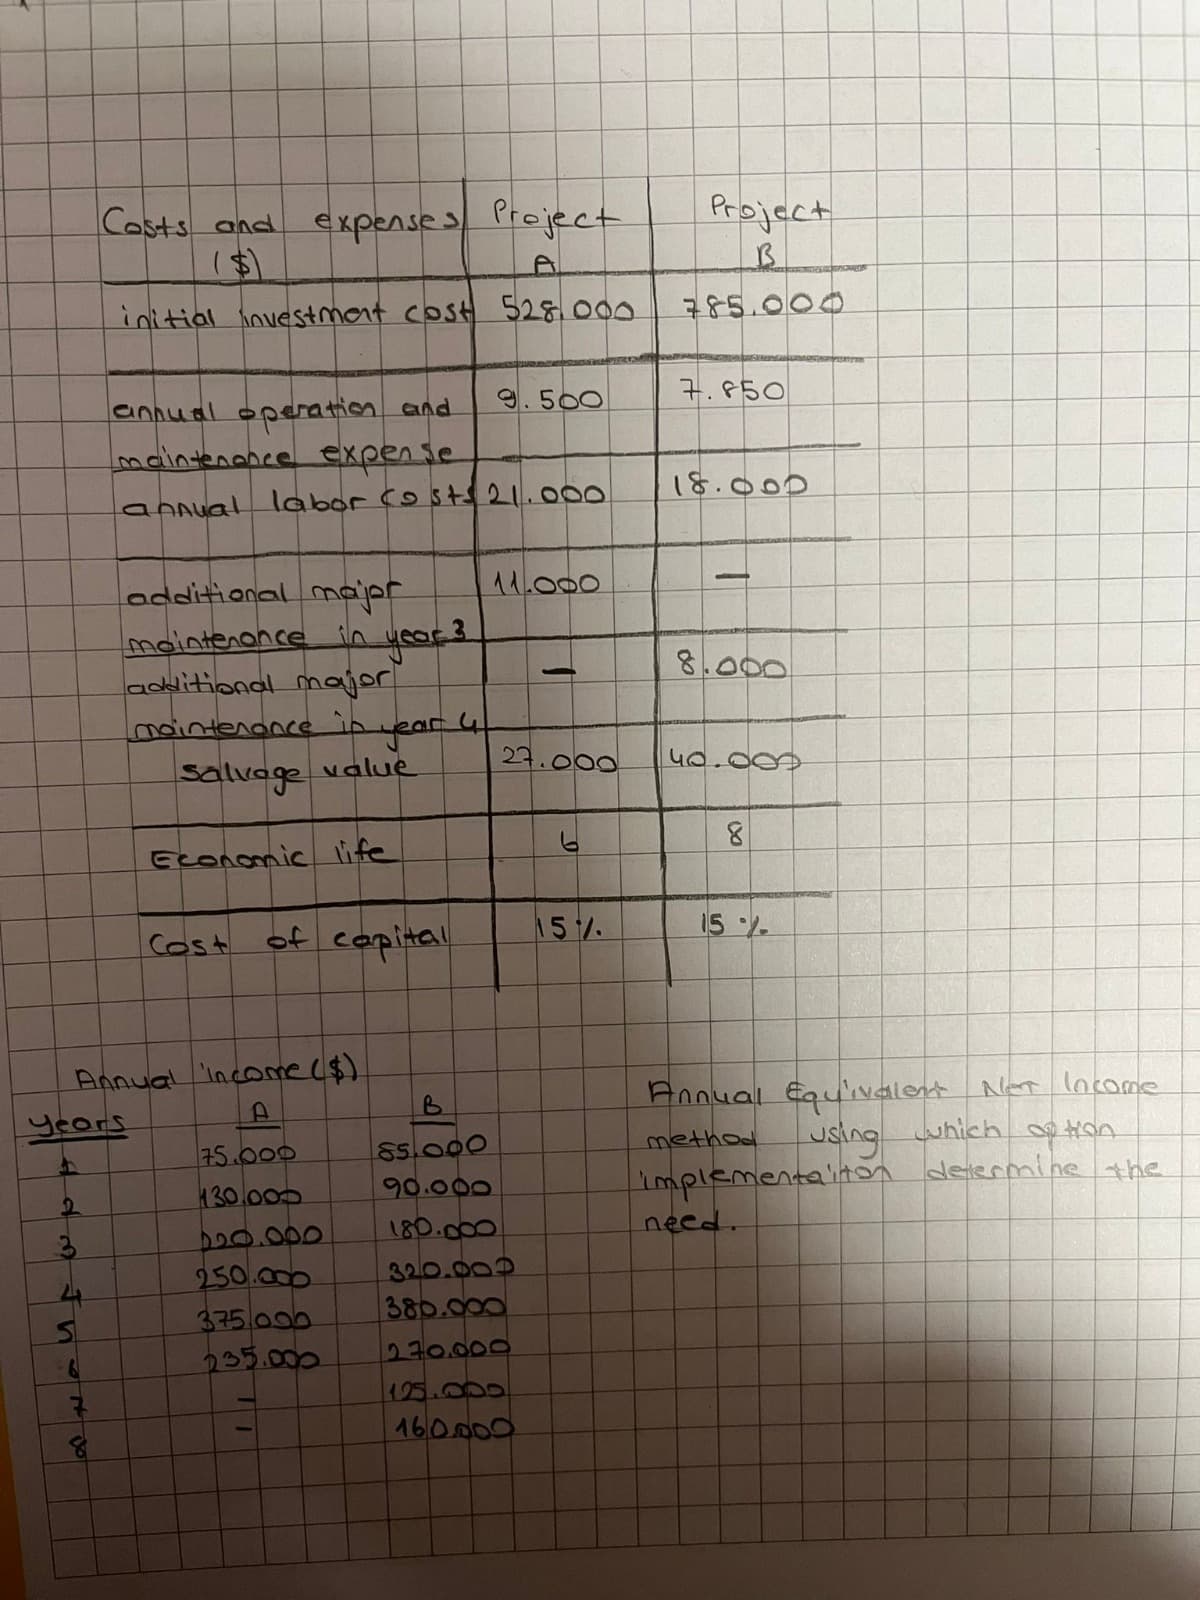 Costs and expenses Project Project
($) A B
initial investment cost 528.000 785.000
annual operation and 9.500 7.850
maintenance expense
annual labor costs 21.000 18.000
additional major 11.000 —
maintenance in year 3
additional major — 8.000
maintenance in year 4
salvage value 27.000 40.000
Economic life 6 8
Cost of capital 15% 15%
Annual income ($)
years A B
1 75.000
2 130.000 90.000
3 220.000 180.000
4 250.000 320.000
5 375.000 380.000
6 235.000 270.000
7 —
8 — 160.000
Annual Equivalent Net Income
method using which option
implementaiton determine the
need.